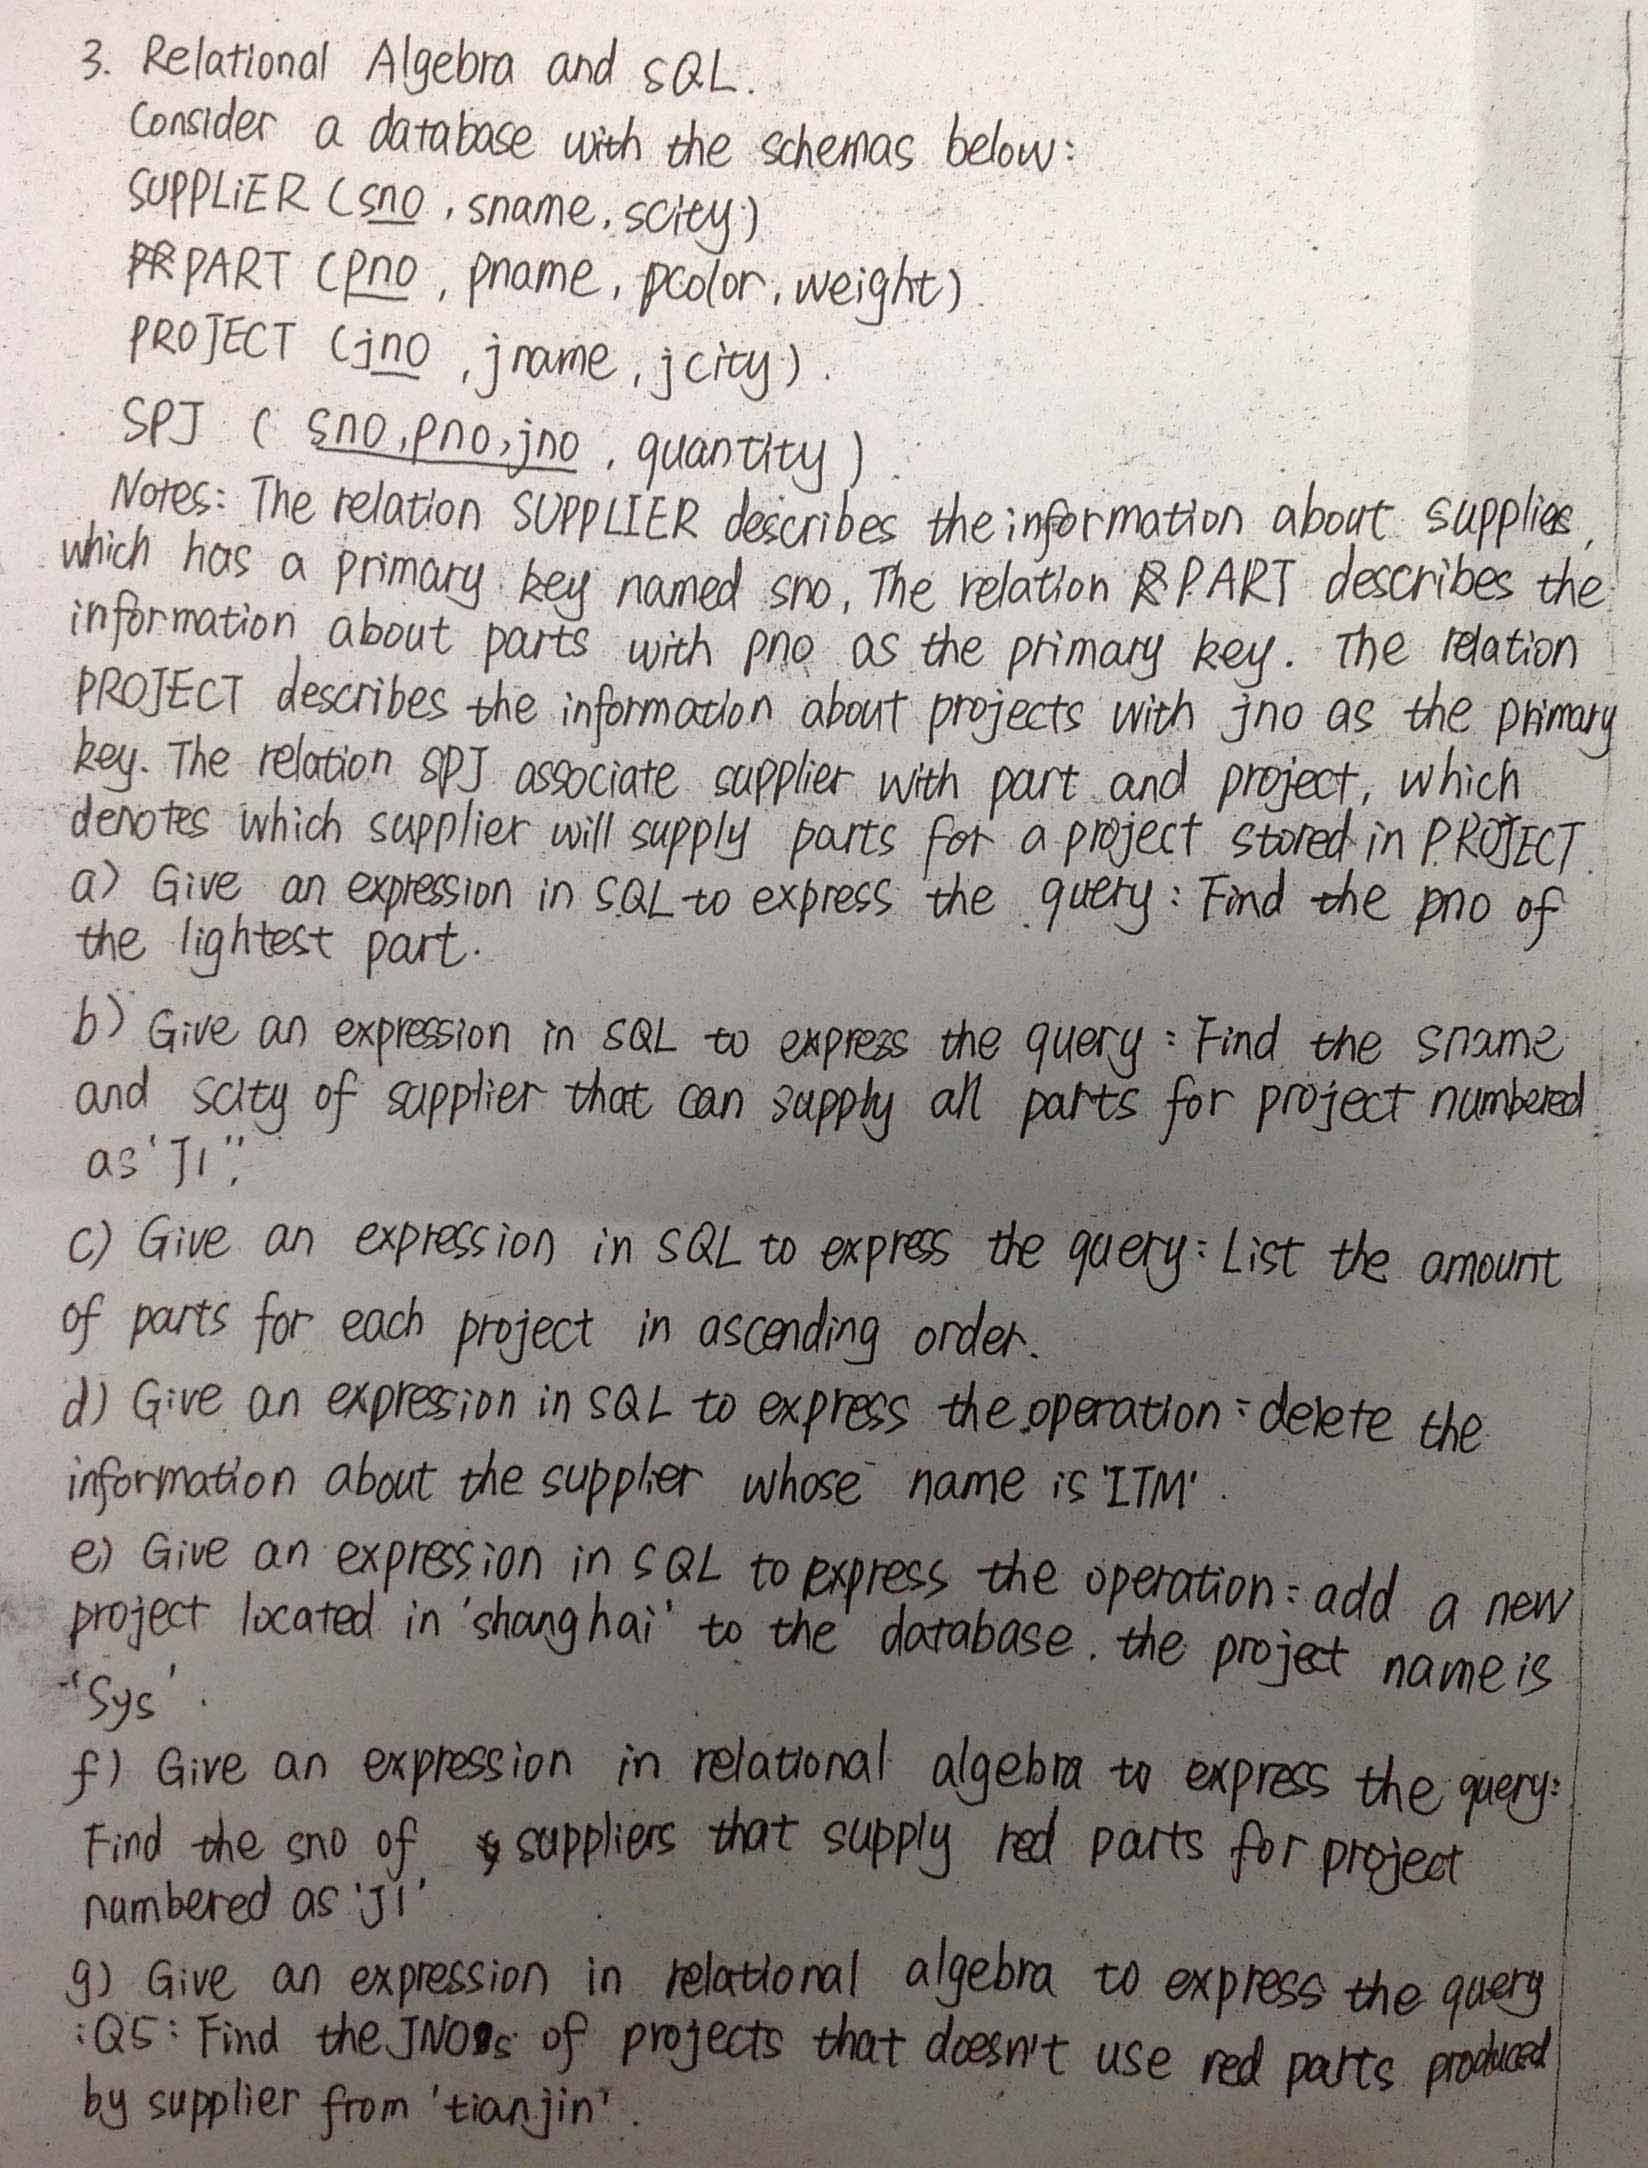 3. Relational Algebra and SQL.
Consider a database with the schemas below:
SUPPLiER (sno, sname, scity)
PART (pno, pname, pcolor, weight).
PROJECT (jno, jname, jcity).
SPJ (sno, pno, jno, quantity).
Notes: The relation SUPPLIER describes the information about supplies,
which has a primary key named sno, The relation PART describes the
information about parts with pno as the primary key. The relation
PROJECT describes the information about projects with jno as the primary
key. The relation SPJ associate supplier with part and project, which
denotes which supplier will supply parts for a project stored in PROJECT.
a) Give an expression in SQL to express the query: Find the pno of
the lightest part.
b) Give an expression in SQL to express the query: Find the sname
and scity of supplier that can supply all parts for project numbered
as 'J1'';
c) Give an expression in SQL to express the query: List the amount
of parts for each project in ascending order.
d) Give an expression in SQL to express the operation: delete the
information about the supplier whose name is 'ITM'.
e) Give an expression in SQL to express the operation: add a new
project located in 'shanghai' to the database. the project name is
'Sys'.
f) Give an expression in relational algebra to express the query:
Find the sno of suppliers that supply red parts for project
numbered as 'J1'
g) Give an expression in relational algebra to express the query
:Q5: Find the JNOs of projects that doesn't use red parts produced
by supplier from 'tianjin'.